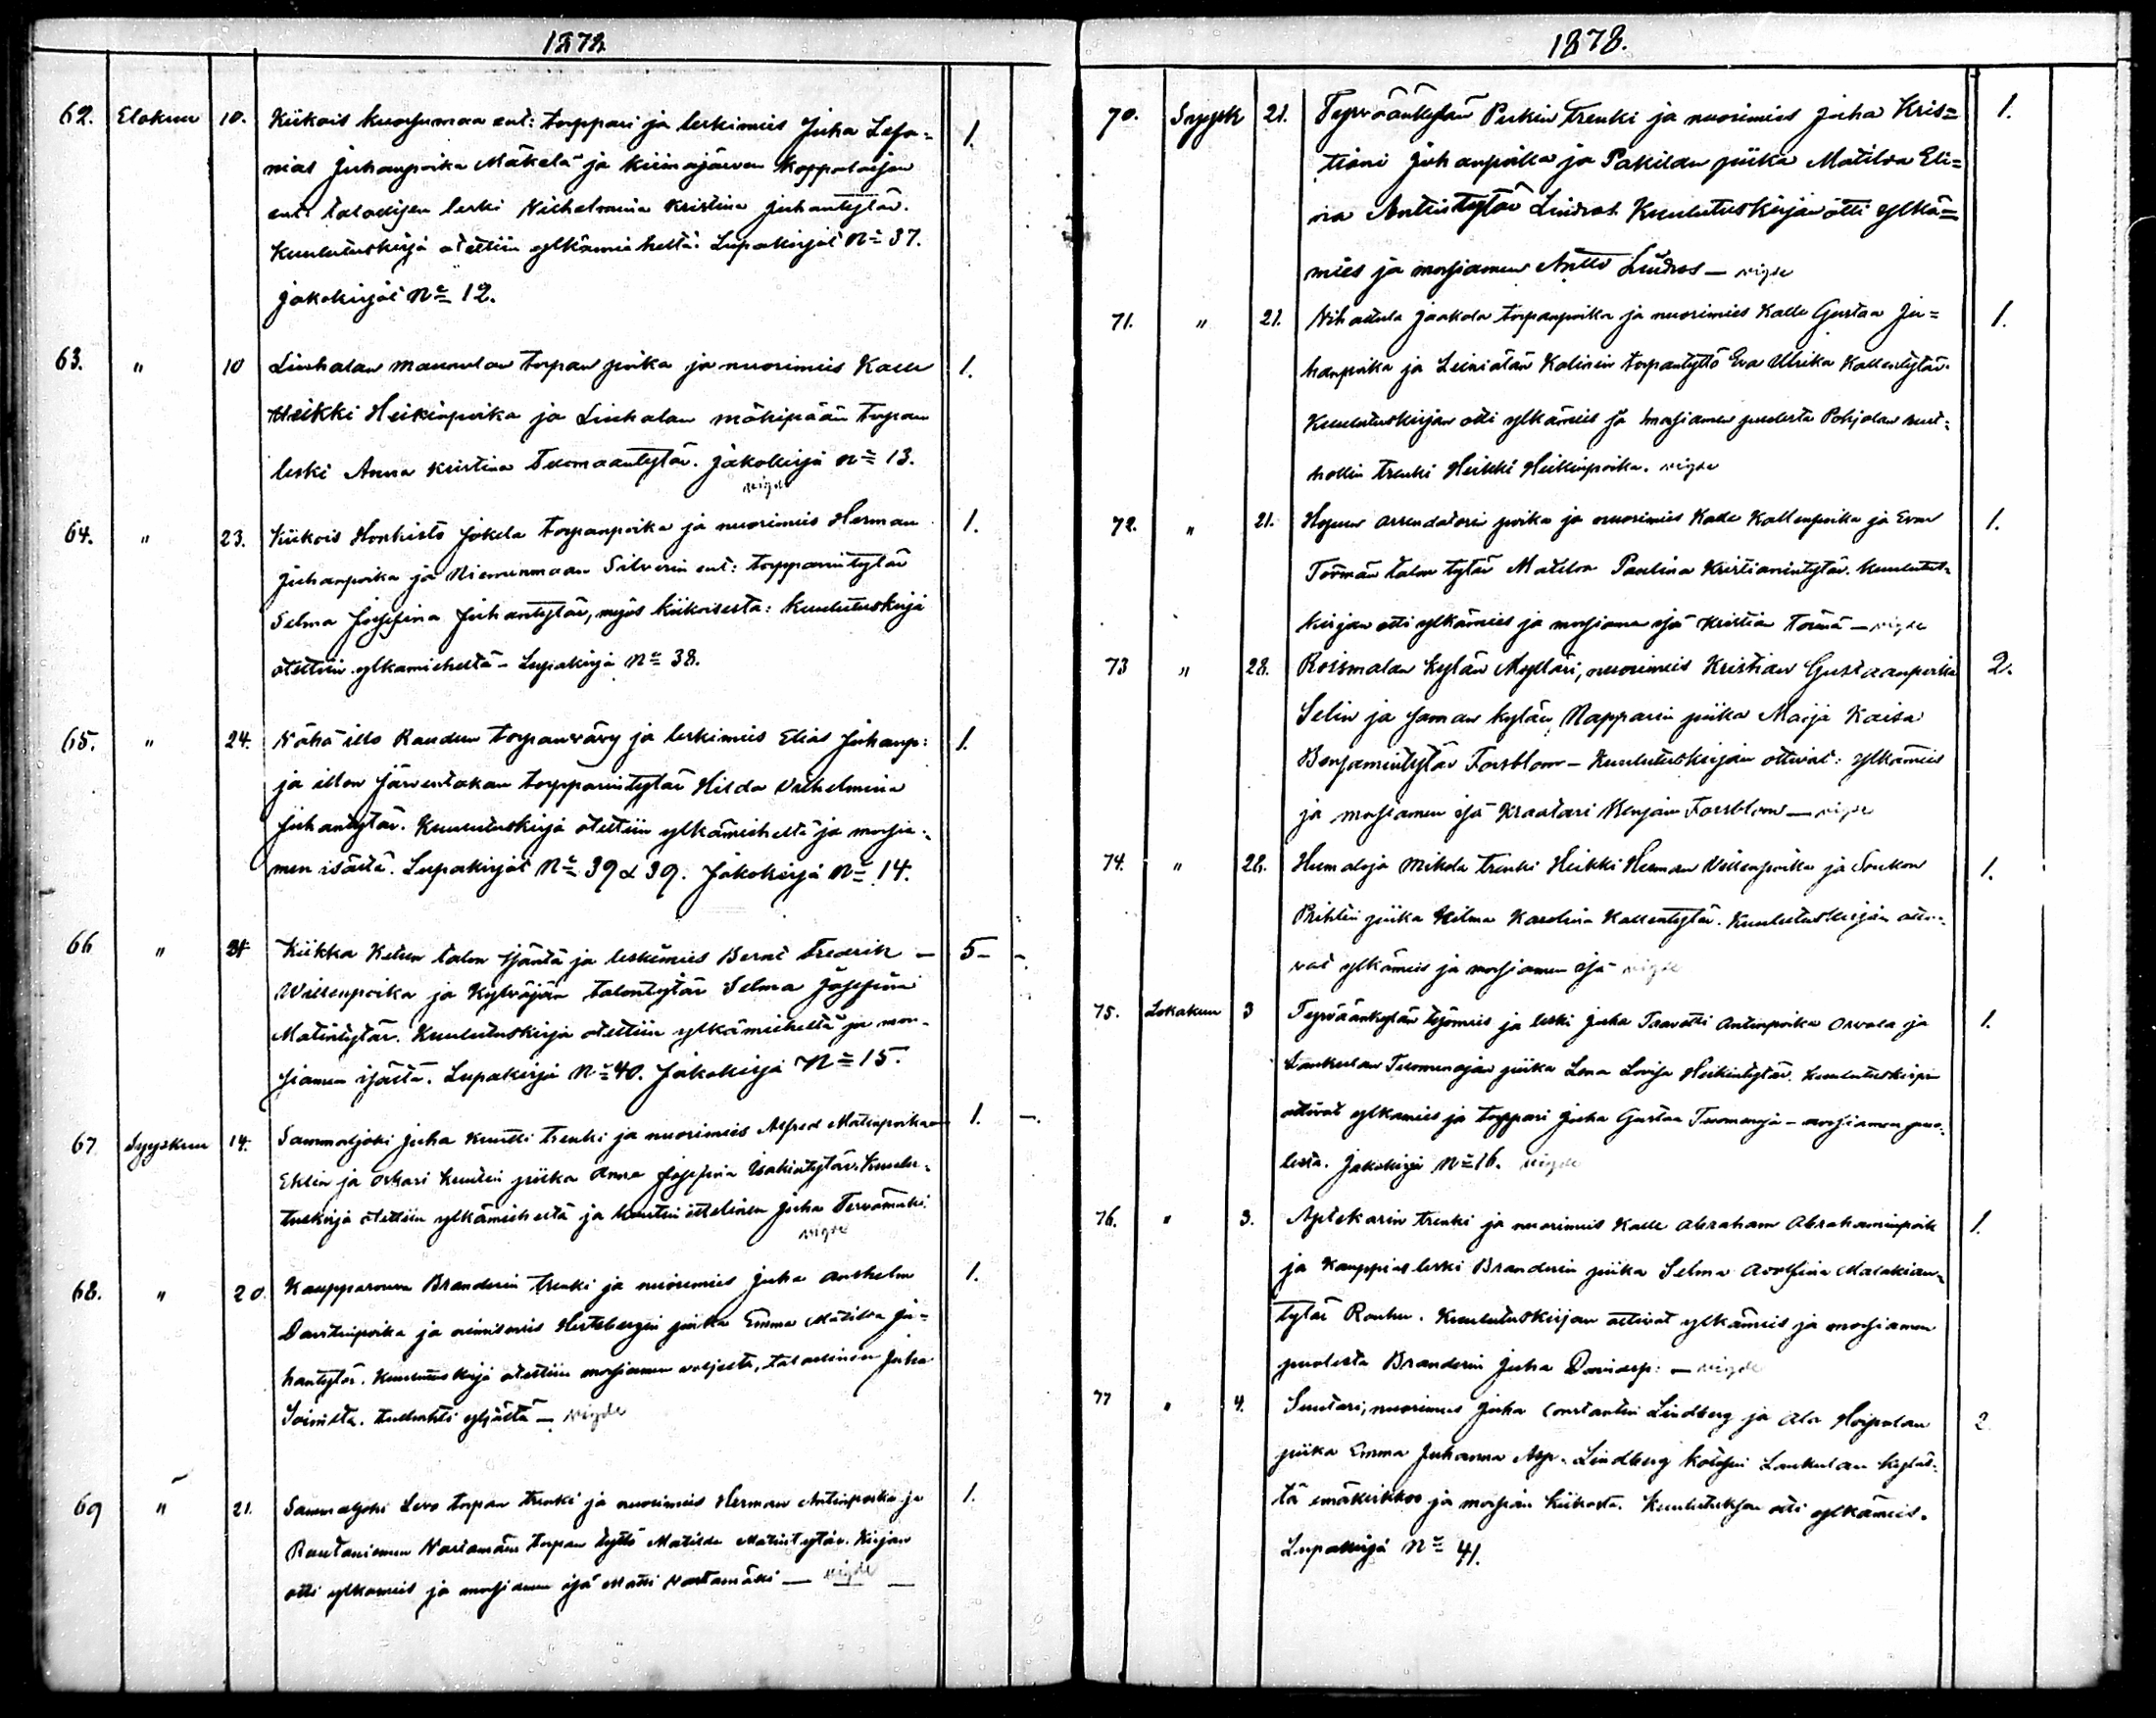 1878
62. Elokuu 10. Kiikois kuorsumaa ent: torppari ja leskimies Juha Lefa= 1.
nias Juhanpoika Mäkelä ja kiimajärven Koppalaisen
ent: talollisen leski Wilhelmina Kristina Juhantytär.
Kuulutuskirja otettiin ylkämieheltä. Lupakirjat No 37.
Jakokirjat No 12.
63. " 10 Liuhalan torpan poika ja nuorimies Kalle 1.
Heikki Heikinpoika ja Liuhalan mäkipään torpan
leski Anna Kristina Tuomaantytär. Jakokirja No 13.
vigde
64. " 23. Kiikois Honkisto Jokela torpanpoika ja nuorimies Herman 1.
Juhanpoika ja Niemenmaan Silverin ent: topparintytär
Selma Josefina Juhantytär, myös kiikoisesta: Kuulutuskirja
otettiin ylkamieheltä - Lupakirja No 38.
65. " 24. Vähä illo Raudun torpanvävy ja leskimies Elias Juhanp: 1.
ja illon Järventakan torpparintytär Hilda Wilhelmina
Juhantytär. Kuulutuskirja otettiin ylkämieheltä ja morsia-
men isältä. Lupakirjat No 39 & 39. Jakokirja No 14.
66 " 24 Kiikka Ketun talon isäntä ja leskimies Bernt Fredrik - 5 -
Willenpoika ja Kylväjän talontytär Selma Josefina
Matintytär. Kuulutuskirja otettiin ylkämieheltä ja mor-
siamen isältä. Lupakirja No 40. Jakokirja No 15.
67 Syyskuu 14. Sammaljoki Juha Knuutti trenki ja nuorimies Alfred Matinpoika 1. -
Ehlin ja Oskari Knuutin piika Anna Josefina Isakintytär. Kuulu-
tuskirja otettiin ylkämieheltä ja Juha Tervamäki.
vigde
68. " 20. Kaupparouva Branderin trenki ja nuorimies Juha Anshelm 1.
Davitinpoika ja nimismies Hertsbergin piika Emma Matilda Ju=
hantytär. Kuulutuskirja otettiin morsiamen veljestä, talollinen Juha
vigde
69 " 21. Sammaljoki Levo torpan trenki ja nuorimies Herman Antinpoika ja 1.
Rautaniemen Vartamäen torpan tyttö Matilda Matintytär. Kirjan
otti ylkamies ja morsiamen isä Matti Vartamäki - vigde -
1878.
70. Syysk 21. Tyrväänkylän Perkin trenki ja nuorimies Juha Kris= 1.
tiani Juhanpoika ja Pakilan piika Matilda Eli=
na Antintytär Lindros. Kuulutuskirjan otti ylkä=
mies ja morsiamen Antto Lindros - vigde
71. " 21. Nihattula Jaakola torpanpoika ja nuorimies Kalle Gustaa Ju= 1.
hanpoika ja Leiniälän Kalinin torpantyttö Eva Ulrika Kallentytär.
Kuulutuskirjan otti ylkämies ja morsiamen puolesta Pohjolan rust-
hollin trenki Heikki Heikinpoika. vigde
72. " 21. Hopun arrendatorin poika ja nuorimies Kalle Kallenpoika ja Evon 1.
Törmän talon tytär Matilda Paulina Kristianintytär. Kuulutus-
kirjan otti ylkämies ja morsiamen isä Kristian Törmä - vigde
73 " 28. Roismalan kylän Mylläri, nuorimies Kristian Gustaanpoika 2.
Selin ja Jaman kylän, Napparin piika Maija Kaisa
Benjamintytär Forsblom - Kuulutuskirjan ottivat: ylkämies
ja morsiamen isä Kraatari Benjam Forsblom - vigde
74. " 28. Humaloja Mikola trenki Heikki Herman Willenpoika ja Soukon 1.
Prihtin piika Hilma Karolina Kallentytär. Kuulutuskirjan otti-
vat ylkämies ja morsiamen isä vigde
75. Lokakuu 3 Tyrväänkylän työmies ja leski Juha Taavetti Antinpoika Orvola ja 1.
Laukulan Tuomenojan piika Lena Lovisa Heikintytär. Kuulutuskirjan
ottivat ylkamies ja torppari Juha Gustaa Tuomenoja - morsiamen puo-
lesta. Jakokirja No 16. vigde
76. " 3. Aptekarin trenki ja nuorimies Kalle Abraham Abrahaminpoik 1.
ja Kauppias leski Branderin piika Selma Adolfina Malakian-
tytär Rouhu. Kuulutuskirjan ottivat ylkämies ja morsiamen
puolesta Branderin Juha Davidsp: - vigde
77 " 4. Suutari, nuorimies Juha Constantin Lindberg ja Ala Hoipolan 2
piika Emma Juhanna Asp. Lindberg kotosin Laukulan kyläs-
tä emäkirkkoa ja morsian kiikasta. Kuulutuksen otti ylkämies.
Lupakirja No 41.